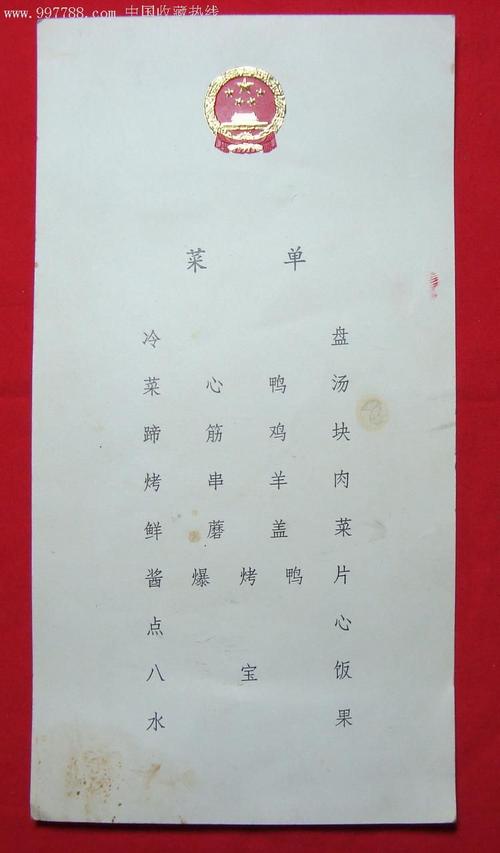 www.997788.com 中国收藏热线
菜 单
冷 盘
菜 心 鸭 汤
蹄 筋 鸡 块
烤 串 羊 肉
鲜 磨 盖 菜
酱 爆 烤 鸭 片
点 心
八 宝 饭
水 果